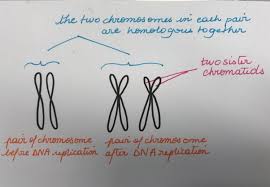 the two chromosomes in each pair
are homologous together
two sister
chromatids
pair of chromosome
before DNA replication
pair of chromosome
after DNA replication